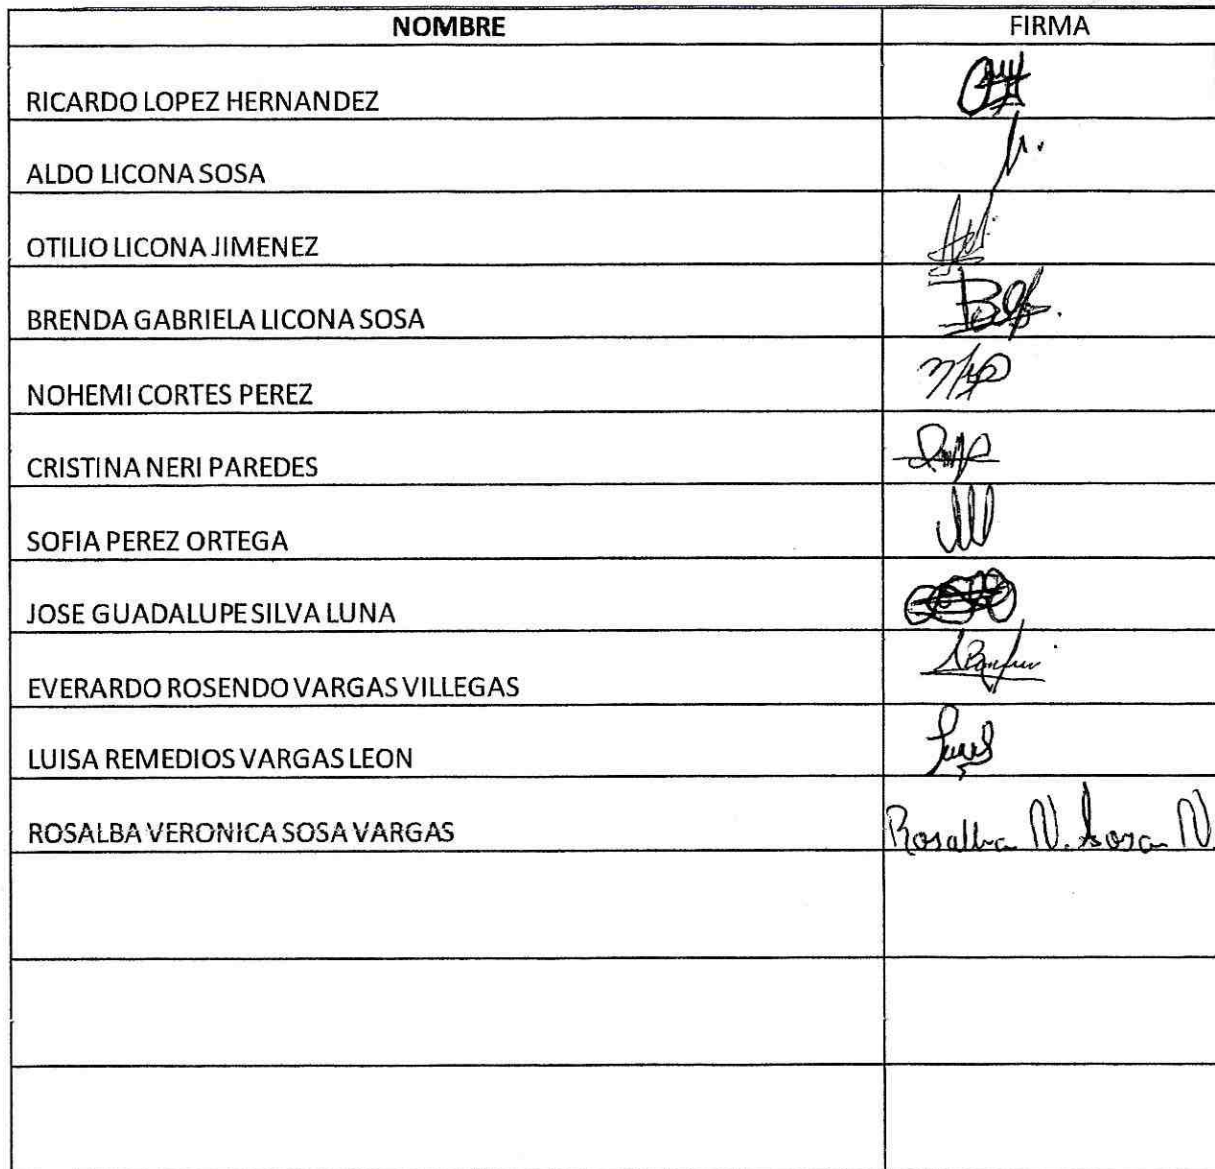 NOMBRE FIRMA
RICARDO LOPEZ HERNANDEZ
ALDO LICONA SOSA
OTILIO LICONA JIMENEZ
BRENDA GABRIELA LICONA SOSA
NOHEMI CORTES PEREZ
CRISTINA NERI PAREDES
SOFIA PEREZ ORTEGA
JOSE GUADALUPE SILVA LUNA
EVERARDO ROSENDO VARGAS VILLEGAS
LUISA REMEDIOS VARGAS LEON
ROSALBA VERONICA SOSA VARGAS Rosalba V. Sosa V.